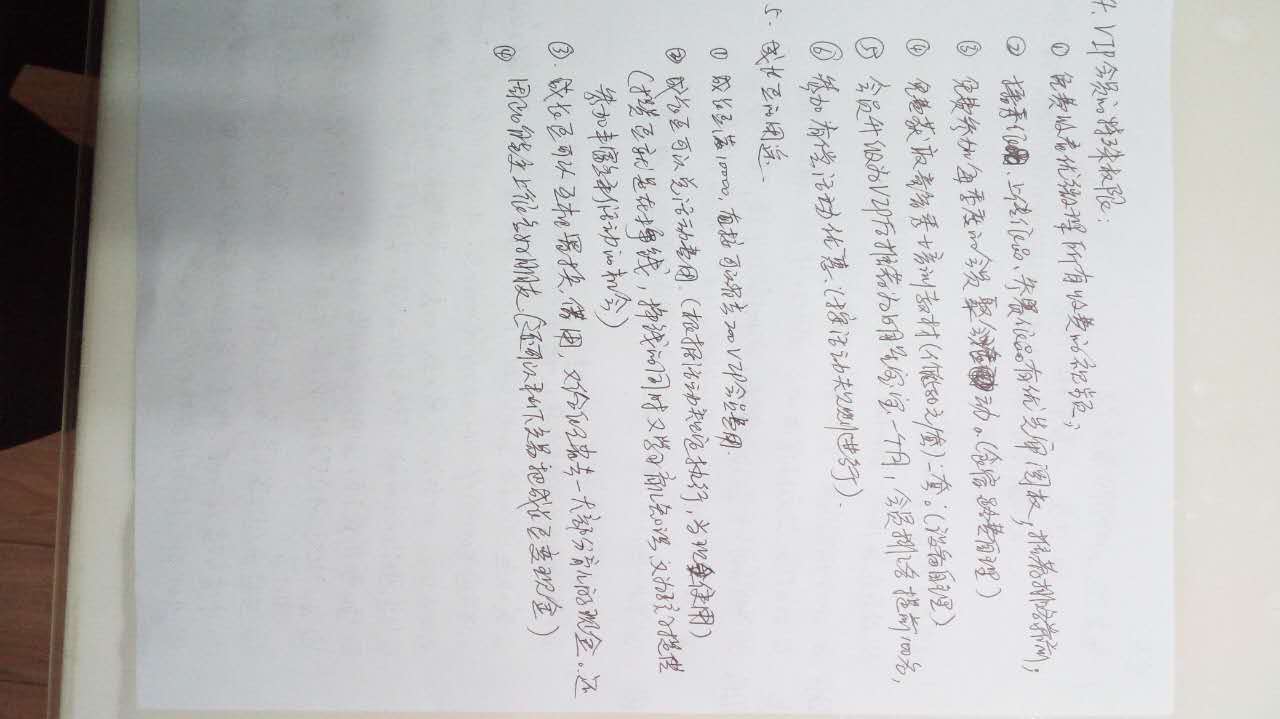 4. VIP会员的特殊权限:
① 免费收看优微课所有收费的视频;
② 上传作品、参赛作品有优先审阅权,推荐排名靠前;
③ 免费参加每季度的会员聚会活动。(食宿路费自理)
④ 免费获取育婴秀培训教材(价值50元/套)一套。(设备自理)
⑤ 会员升级为VIP后推荐为明星宝宝一个月,会员排名提前100名,
⑥ 参加有偿活动优惠.(按活动规则进行).
5. 成长豆的用途.
① 成长豆满10000,直接可以省去200VIP会员费用.
② 成长豆可以兑活动费用.(根据活动规定执行,当现金使用)
(攒豆就是在挣钱,挣钱的同时又学习育儿知识,又为孩子提供
参加丰富多彩活动的机会)
③. 成长豆可以互相置换,借用,又给你省去一大部分育儿的现金。还
④ 因此能交上很多好朋友.(还可以私下交易把成长豆变现金)